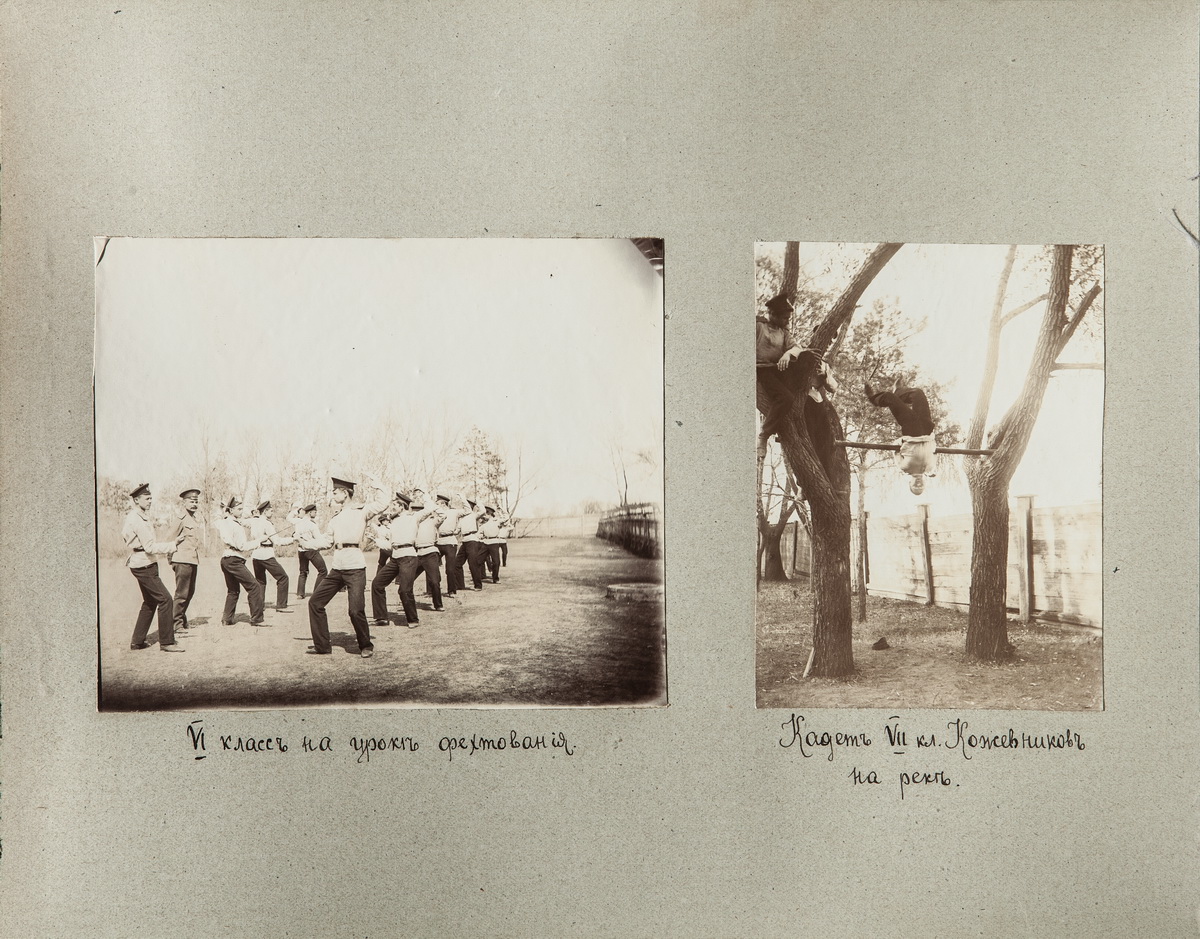 VI классъ на урокѣ фехтованія.
Кадетъ VII кл. Кожевниковъ
на рекѣ.